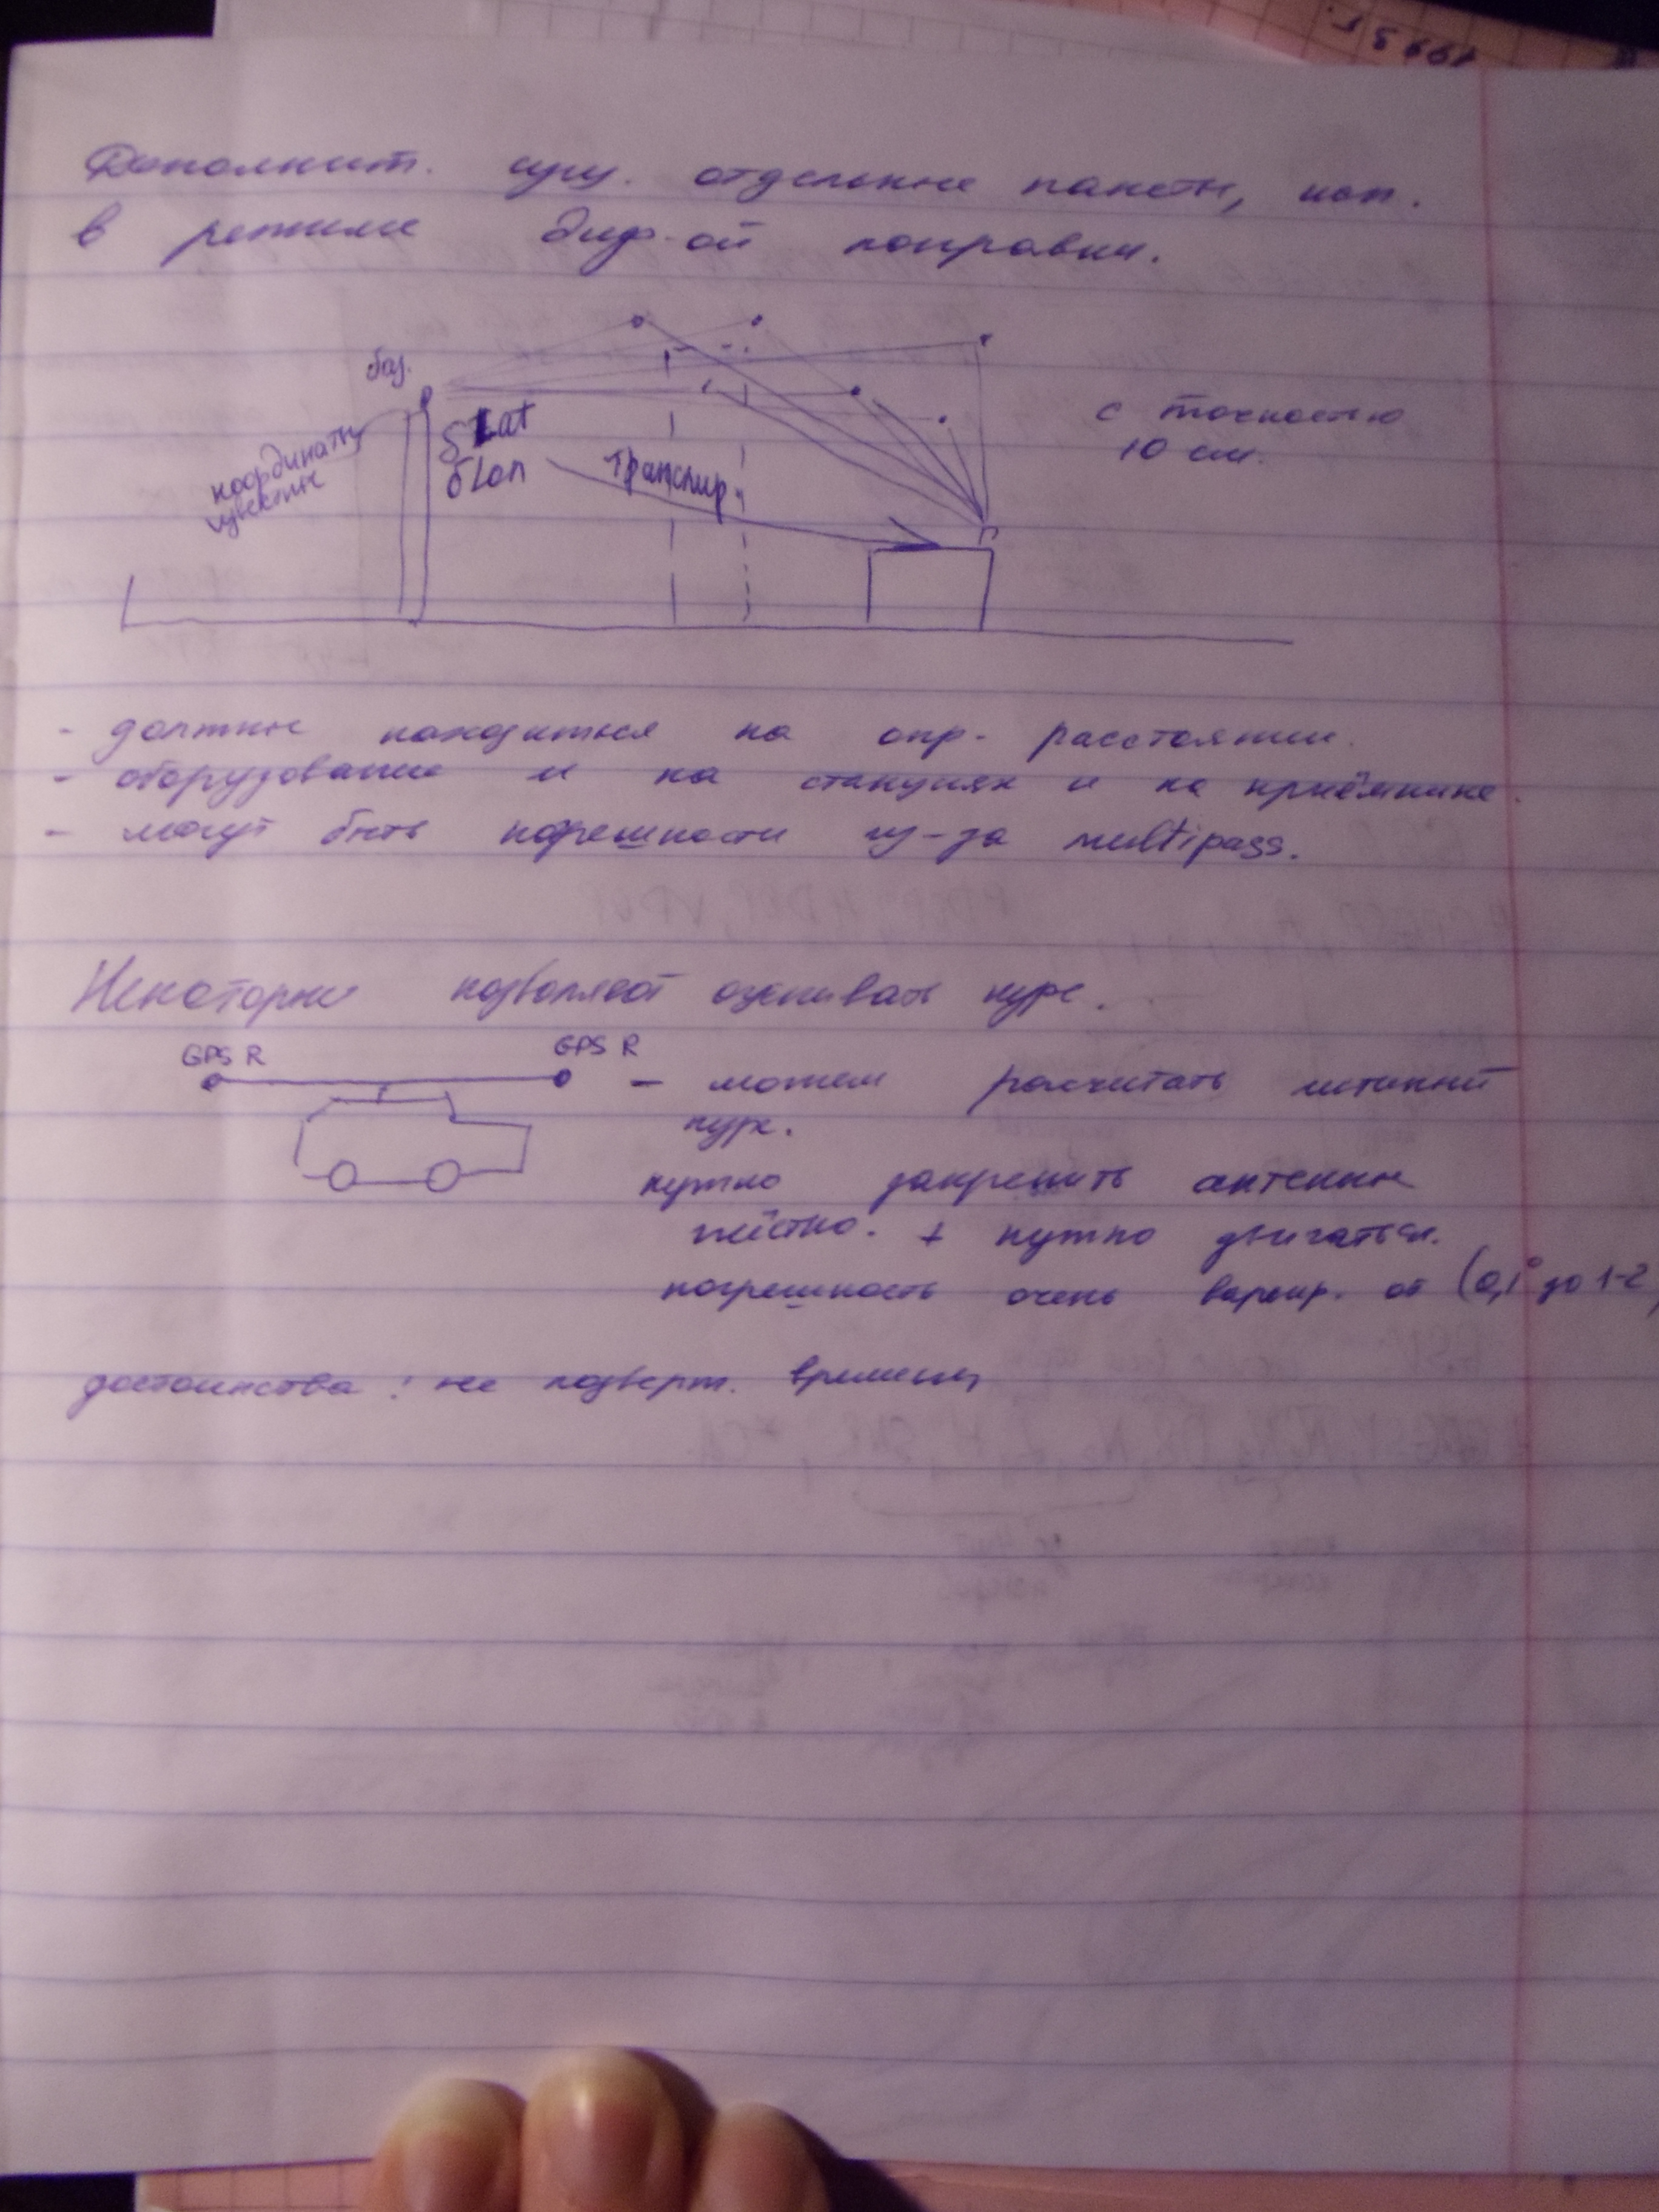 Дополнит. сущ. отдельные пакеты, исп.
в режиме диф-ой поправки.
баз.
координаты
известны
δLat
δLon
Транслир.
с точностью
10 см.
- должны находиться на опр. расстоянии.
- оборудование и на станциях и на приёмнике.
- могут быть погрешности из-за multipass.
Некоторые позволяют оценивать курс.
GPS R
GPS R
- можем расчитать истинный
курс.
нужно закрепить антенны
жёстко. + нужно двигаться.
погрешность очень варьир. от (0,1° до 1-2
достоинства: не подверж. времени